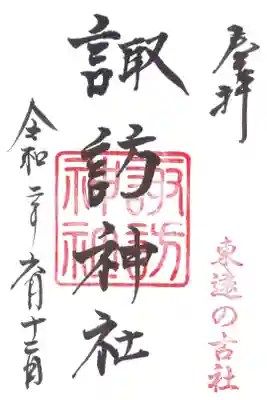 奉拝
東遠の古社
諏訪神社
諏訪神社
令和二年六月十二日